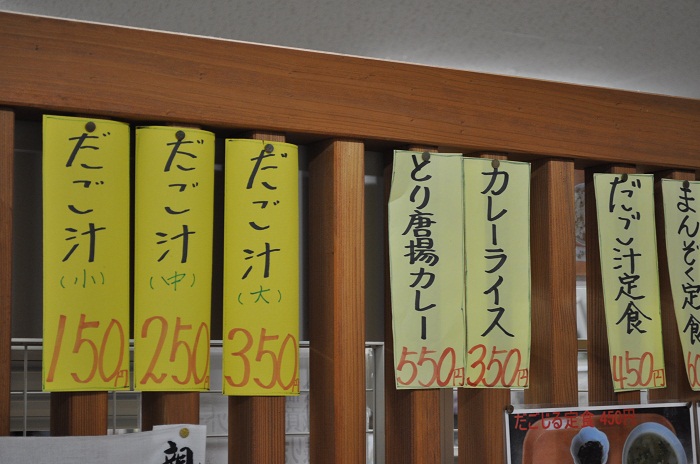 だご汁
(小)
150円
だご汁
(中)
250円
だご汁
(大)
350円
とり唐揚カレー
550円
カレーライス
350円
だご汁定食
450円
まんぞく定
だごじる定食 450円
親